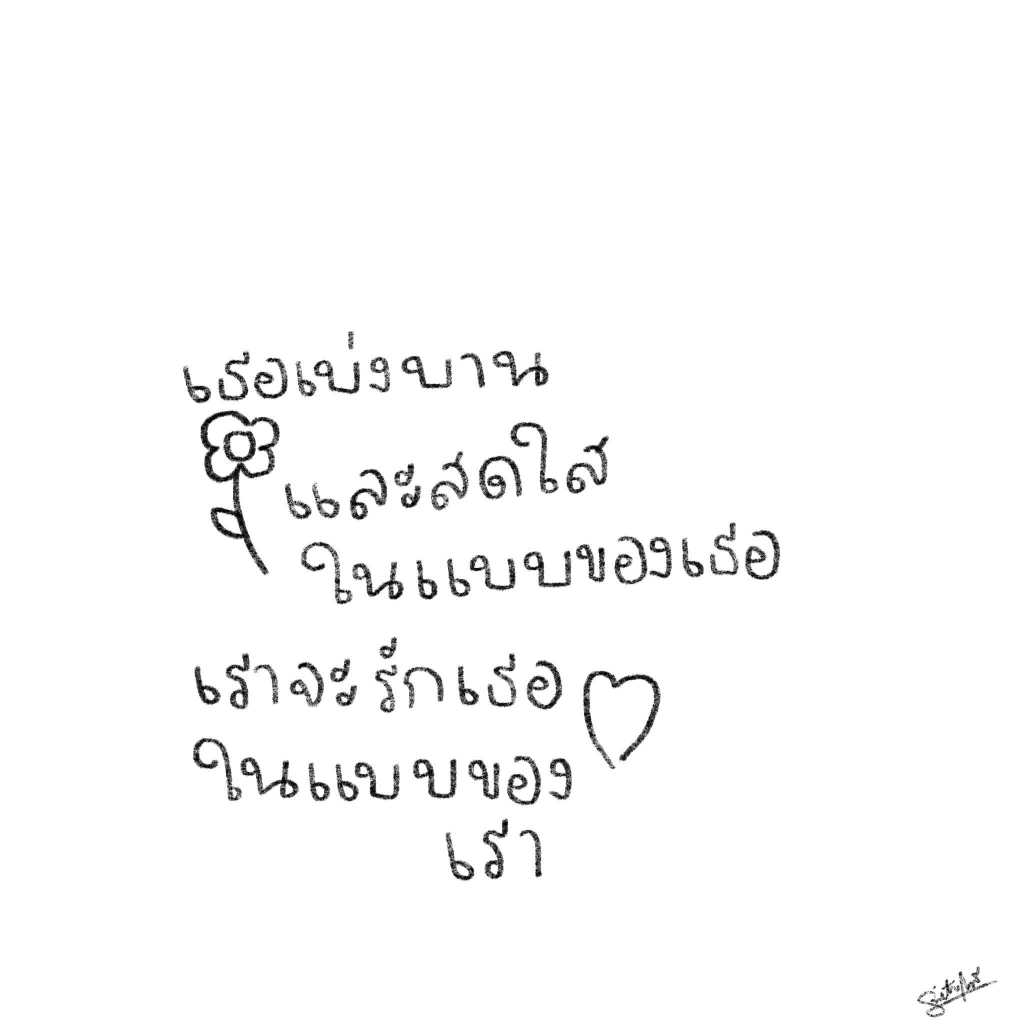 เธอเบ่งบาน
และสดใส
ในแบบของเธอ
เราจะรักเธอ
ในแบบของ
เรา